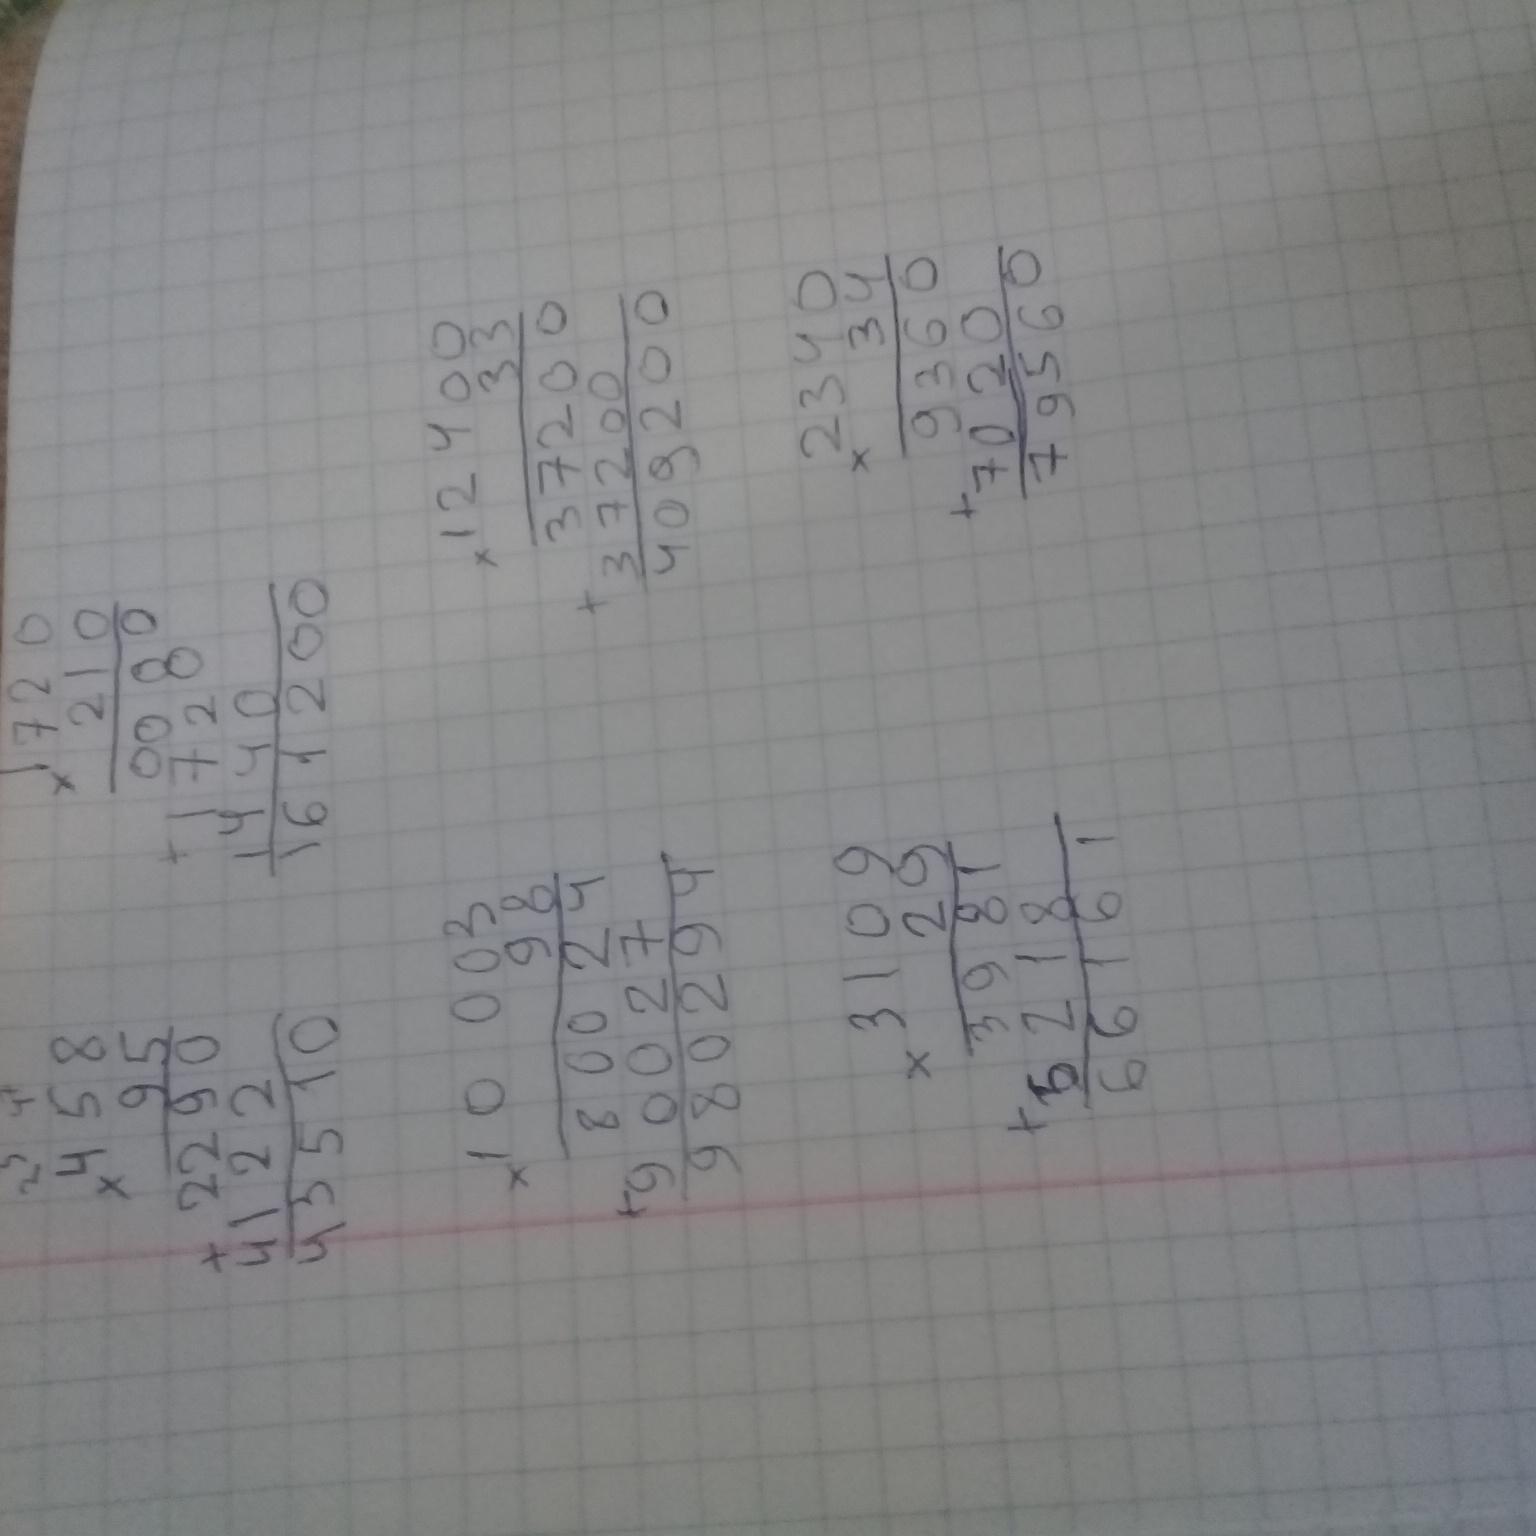 458
× 95
2290
+ 4122
43510
1720
× 210
0000
+ 1720
1440
161200
10003
× 98
80024
+ 90027
980294
12400
× 33
37200
+ 37200
409200
3109
× 29
3981
+ 6218
66161
2340
× 34
9360
+ 7020
79560